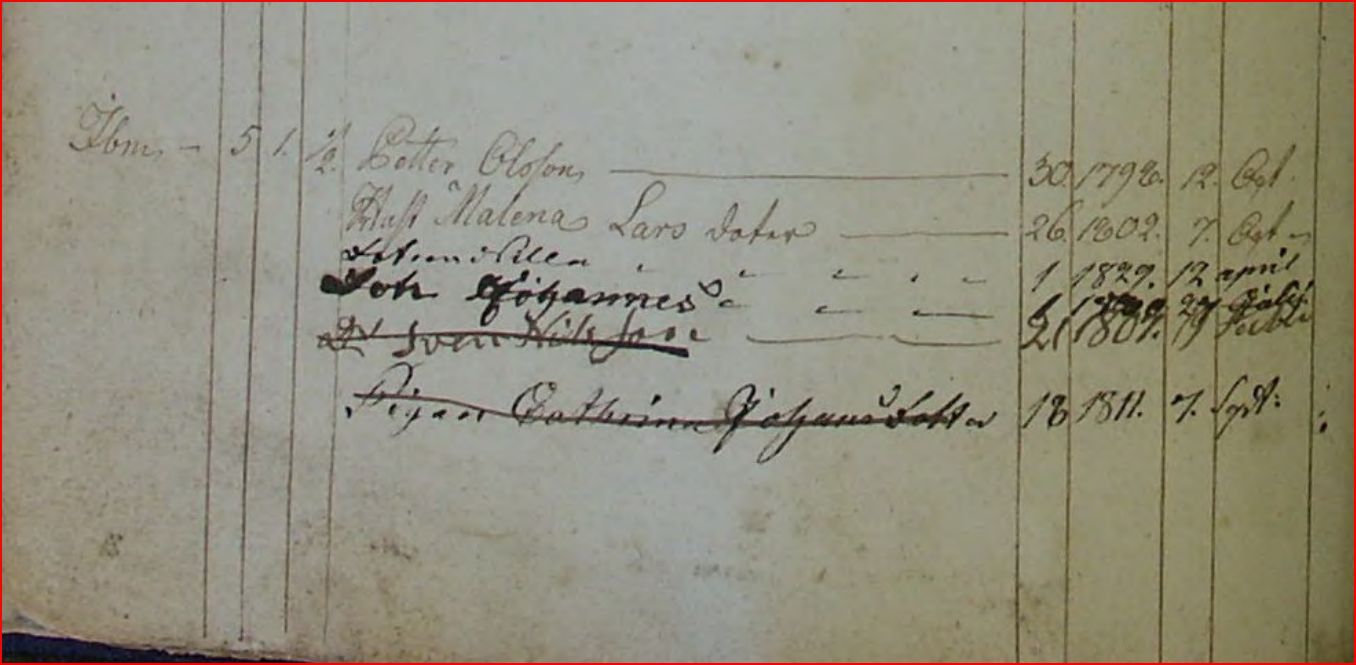 Ibm, - 5 1. 1/2. Petter Olofson, 30. 1798. 12. Ogt.
Hust Malena Lars doter 26. 1802. 7. Ogt
1 1829. 12 april
Son Johannes 27
Dr Sven Nilssone 21 1807. 19
Pigan Cathrina Johans dotter 18 1811. 7. Sept: